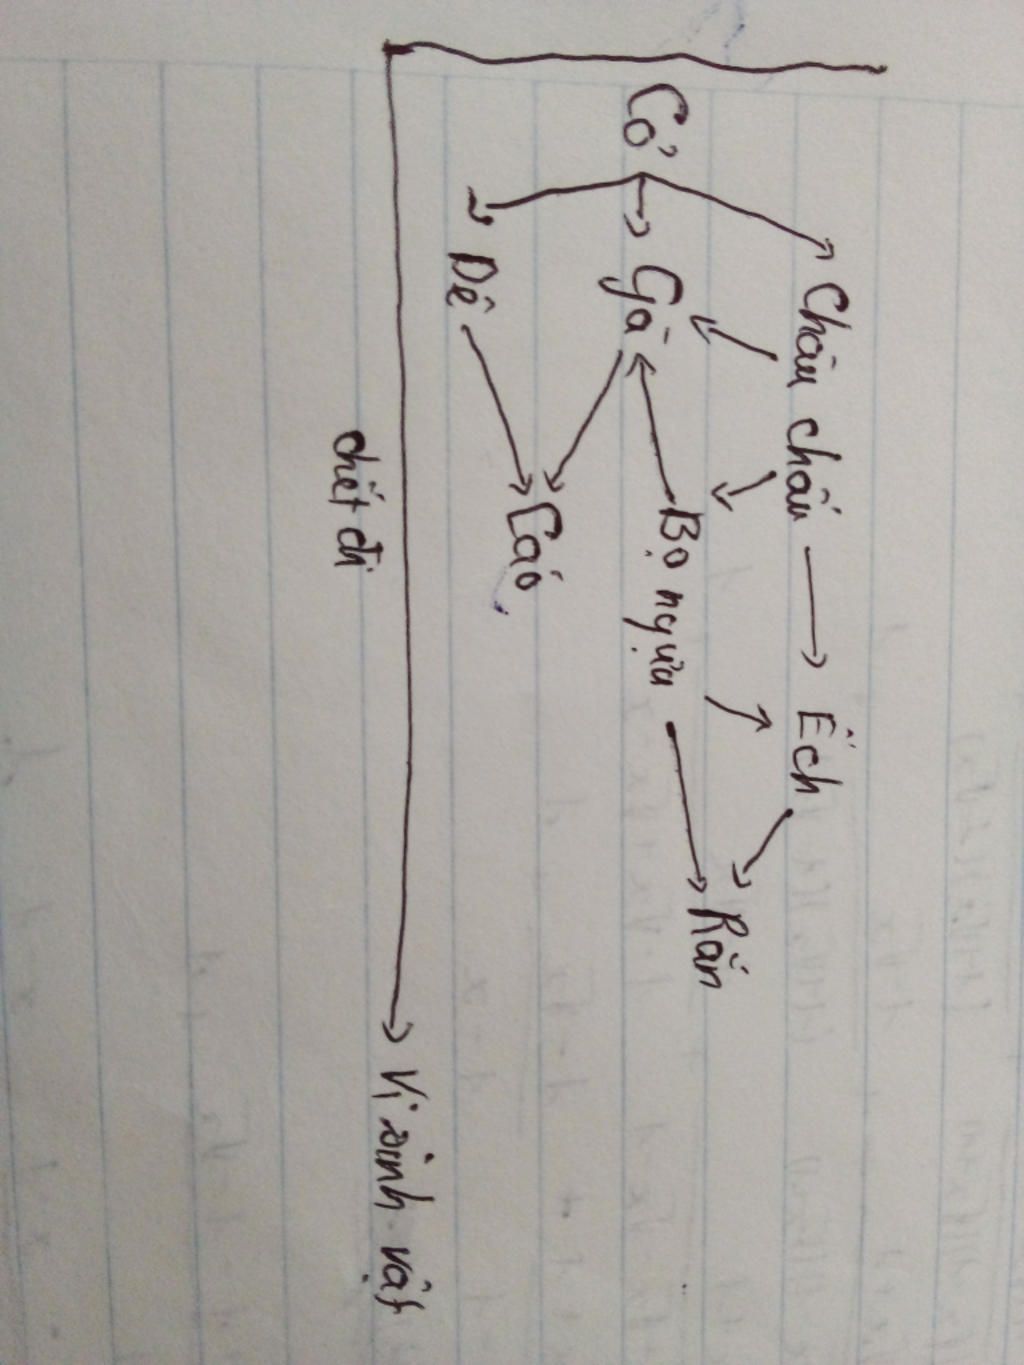 Cỏ
Châu chấu
Ếch
Gà
Bọ ngựa
Rắn
Dê
Cáo
chết đi
Vi sinh vật